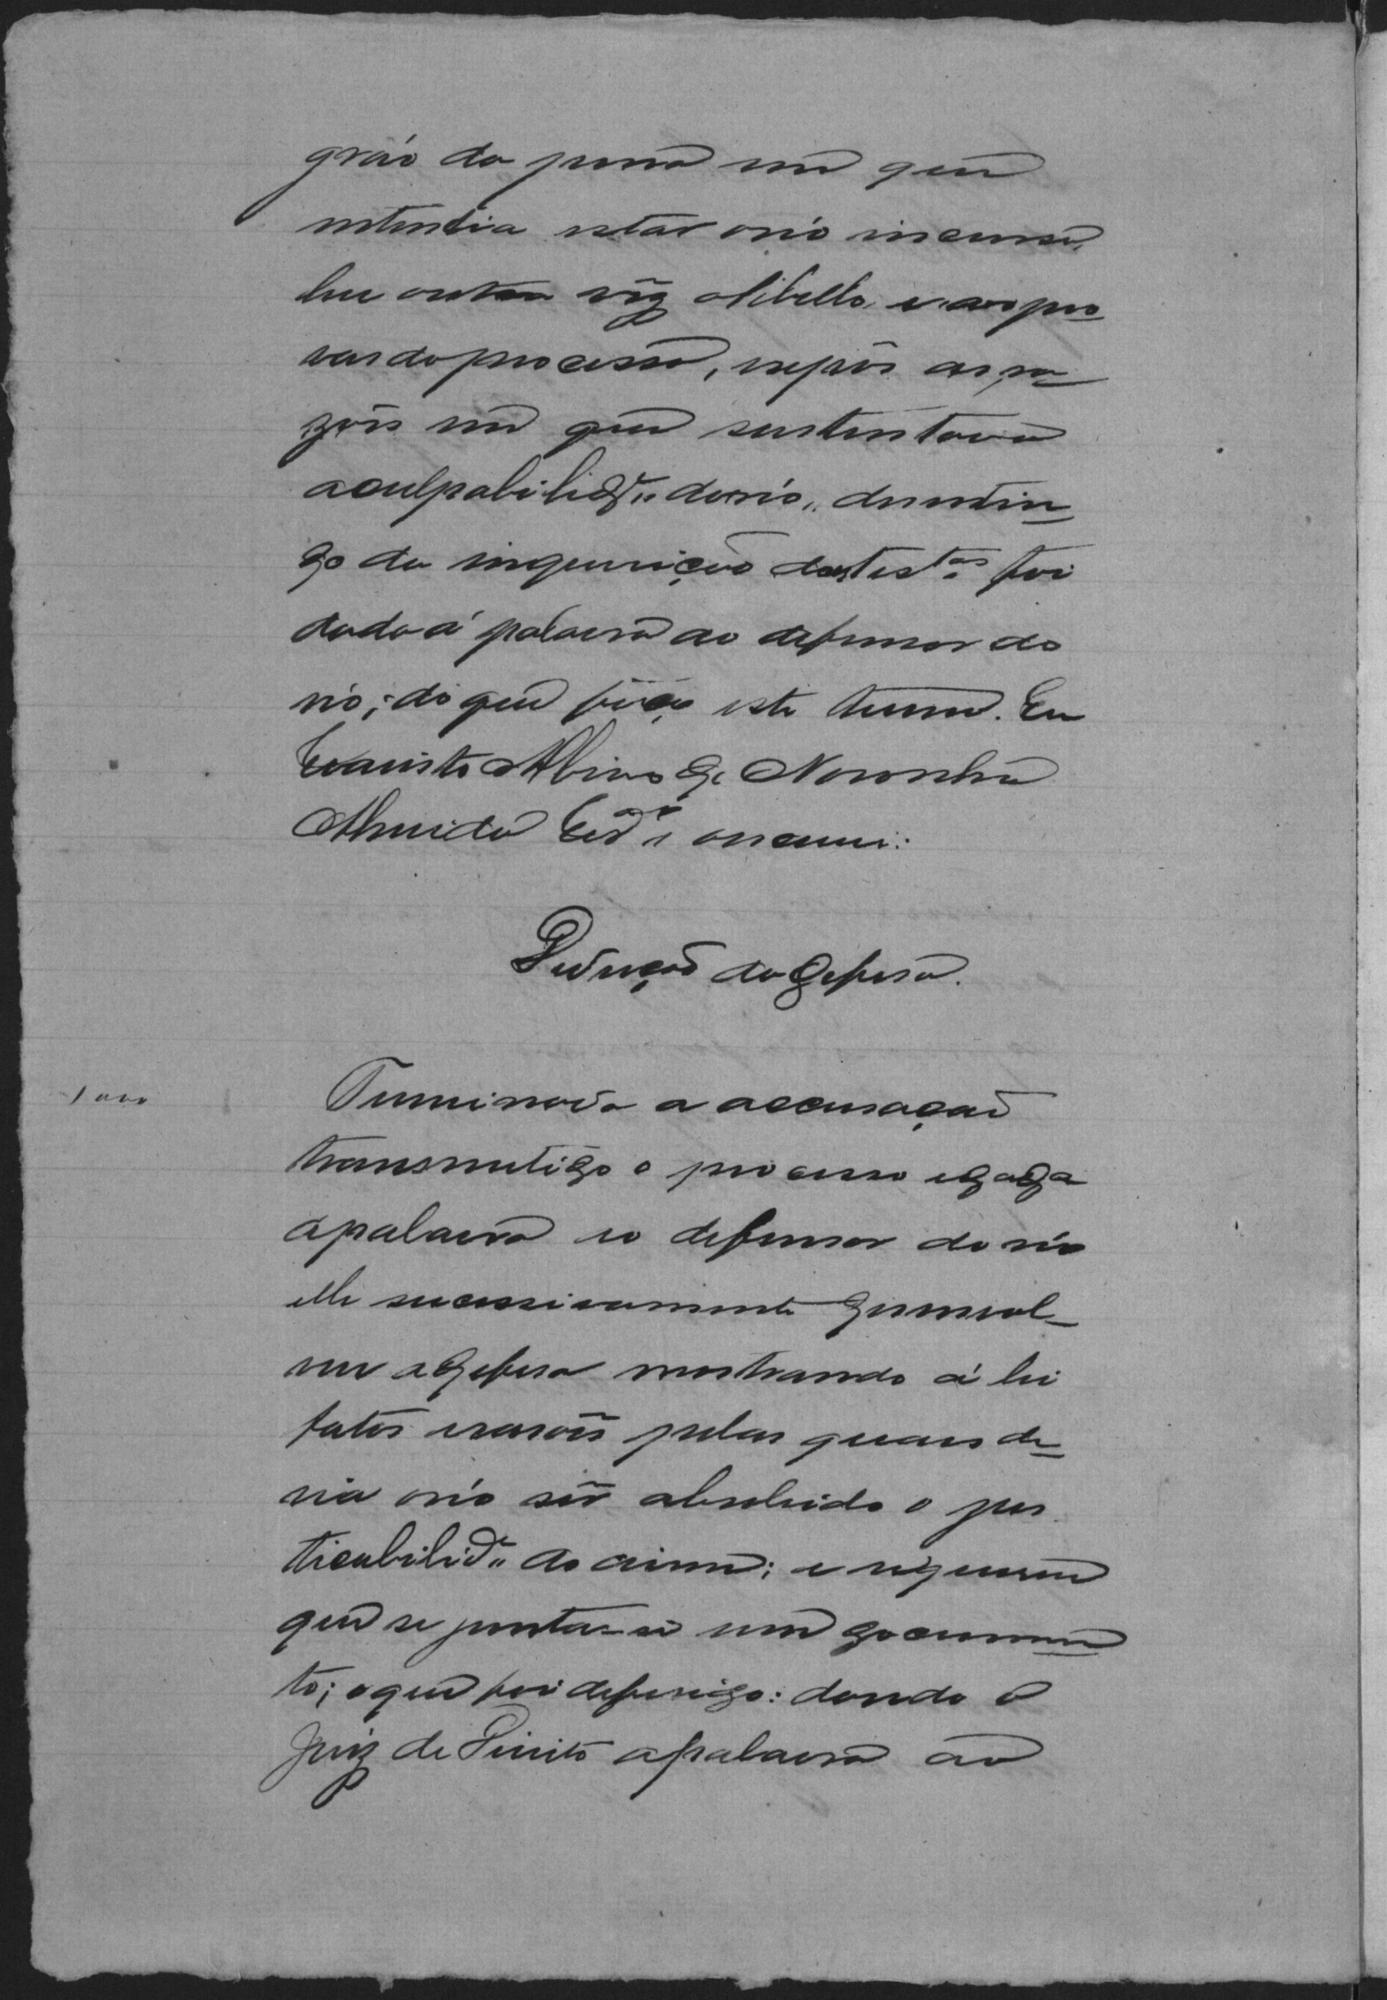 gráo da pena em que
entendia estar o réo incurso,
leu outra vez o libello, e as pro-
vas do processo, expôs as ra-
zões em que sustentava
a culpabilid.e do réo,
da inquirição das test.as foi
dada á palavra ao defensor do
réo; do que faço este termo. Eu
Evaristo Albino de Noronha
Almeida Escr.am o escrevi.
Deducção da Defesa.
1000
Terminada a accusação
transmetido o processo e dada
a palavra ao defensor do réo
elle successivamente desenvol-
veu a defesa mostrando á lei
fatos e rasões pelas quaes de-
via o réo ser absolvido
do crime; e requereu
que se juntasse um documen-
to; o que foi deferido: dando o
Juiz de Direito a palavra ao